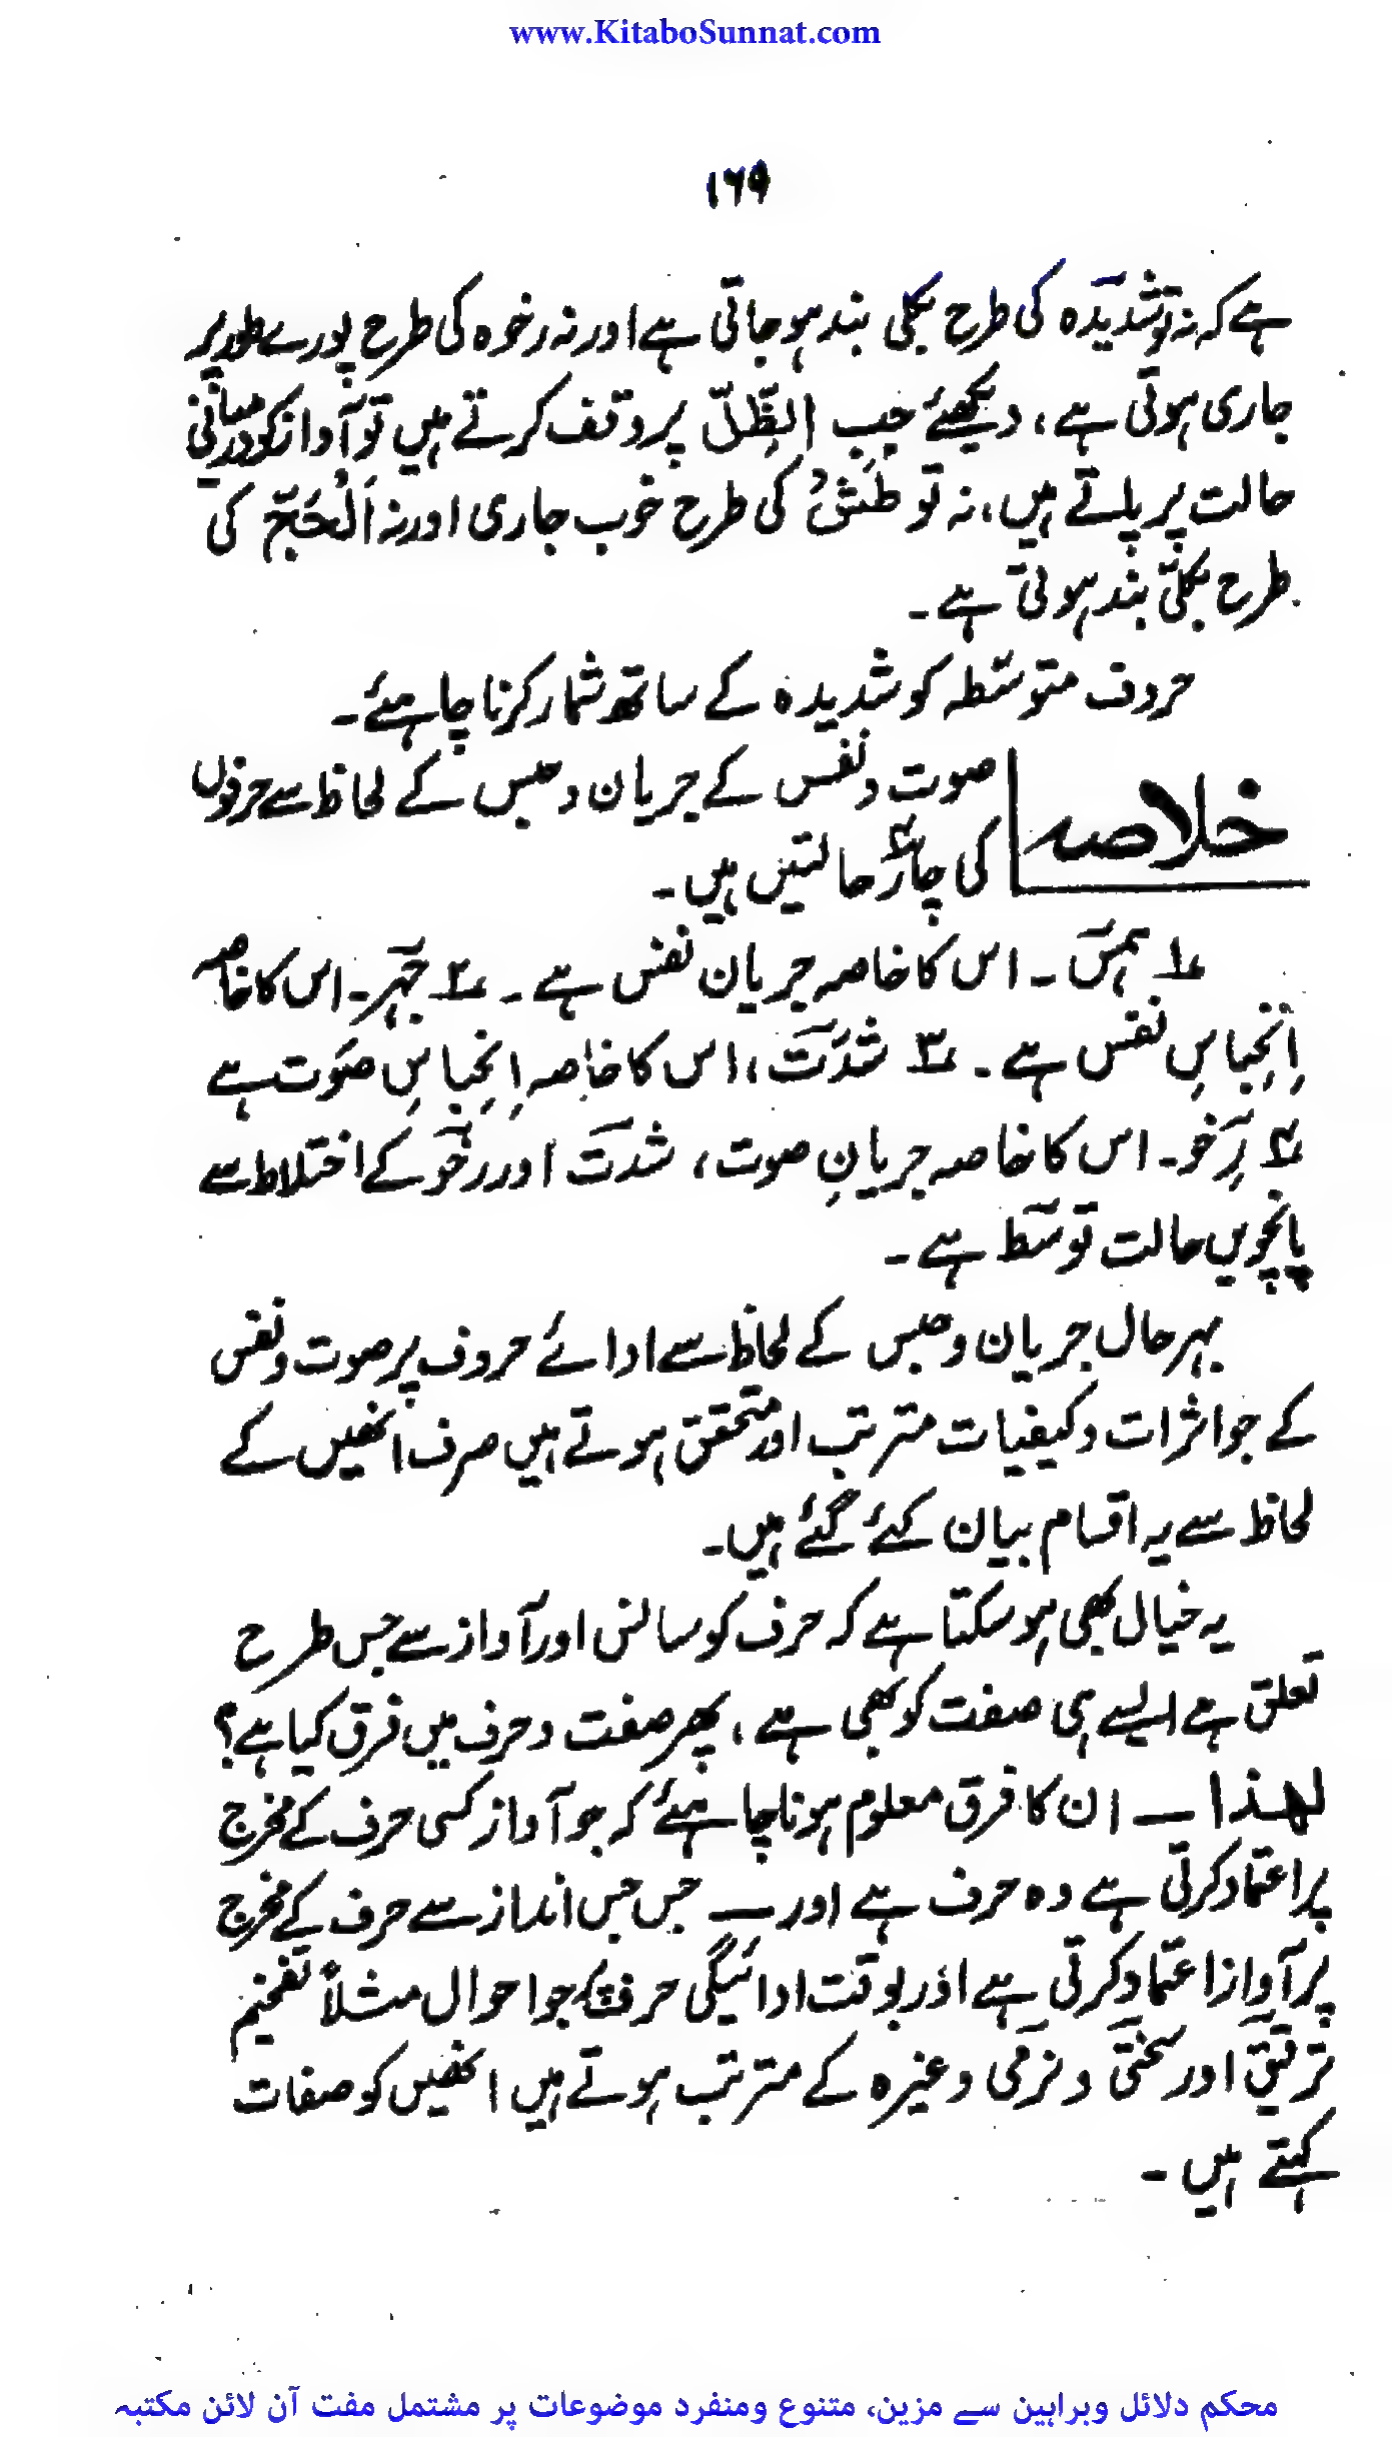 www.KitaboSunnat.com
۱۶۹
ہے کہ نہ تو شدیدہ کی طرح بکلی بند ہو جاتی ہے اور نہ رخوہ کی طرح پورے طور پر
جاری ہوتی ہے، دیکھئے جب الظِّلّ پر وقف کرتے ہیں تو آواز کو درمیانی
حالت پر پاتے ہیں، نہ تو طَشْ کی طرح خوب جاری اور نہ اَلْحَجّ کی
طرح بکلّی بند ہوتی ہے۔
حروف متوسّطہ کو شدیدہ کے ساتھ شمار کرنا چاہئے۔
خلاصہ
صوت و نفس کے جریان و حبس کے لحاظ سے حرفوں
کی چار۴ حالتیں ہیں۔
۱؎ ہمس۔ اس کا خاصہ جریان نفس ہے۔ ۲؎ جہر۔ اس کا خاصہ
اِنحِباسِ نفس ہے۔ ۳؎ شدّت، اس کا خاصہ اِنحِباسِ صَوت ہے
۴؎ رِخو۔ اس کا خاصہ جریانِ صوت، شدت اور رخو کے اختلاط سے
پانچویں حالت توسّط ہے۔
بہر حال جریان و حبس کے لحاظ سے ادائے حروف پر صوت و نفس
کے جو اثرات و کیفیات مترتب اور متحقق ہوتے ہیں صرف انھیں کے
لحاظ سے یہ اقسام بیان کئے گئے ہیں۔
یہ خیال بھی ہو سکتا ہے کہ حرف کو سانس اور آواز سے جس طرح
تعلق ہے ایسے ہی صفت کو بھی ہے، پھر صفت و حرف میں فرق کیا ہے؟
لہٰذا — ان کا فرق معلوم ہونا چاہئے کہ جو آواز کسی حرف کے مخرج
پر اعتماد کرتی ہے وہ حرف ہے اور — جس جس انداز سے حرف کے مخرج
پر آواز اعتماد کرتی ہے اور بوقت ادائیگی حرف کے جو احوال مثلاً تفخیم
ترقیق اور سختی و نرمی وغیرہ کے مترتب ہوتے ہیں انھیں کو صفات
کہتے ہیں۔
محکم دلائل وبراہین سے مزین، متنوع ومنفرد موضوعات پر مشتمل مفت آن لائن مکتبہ